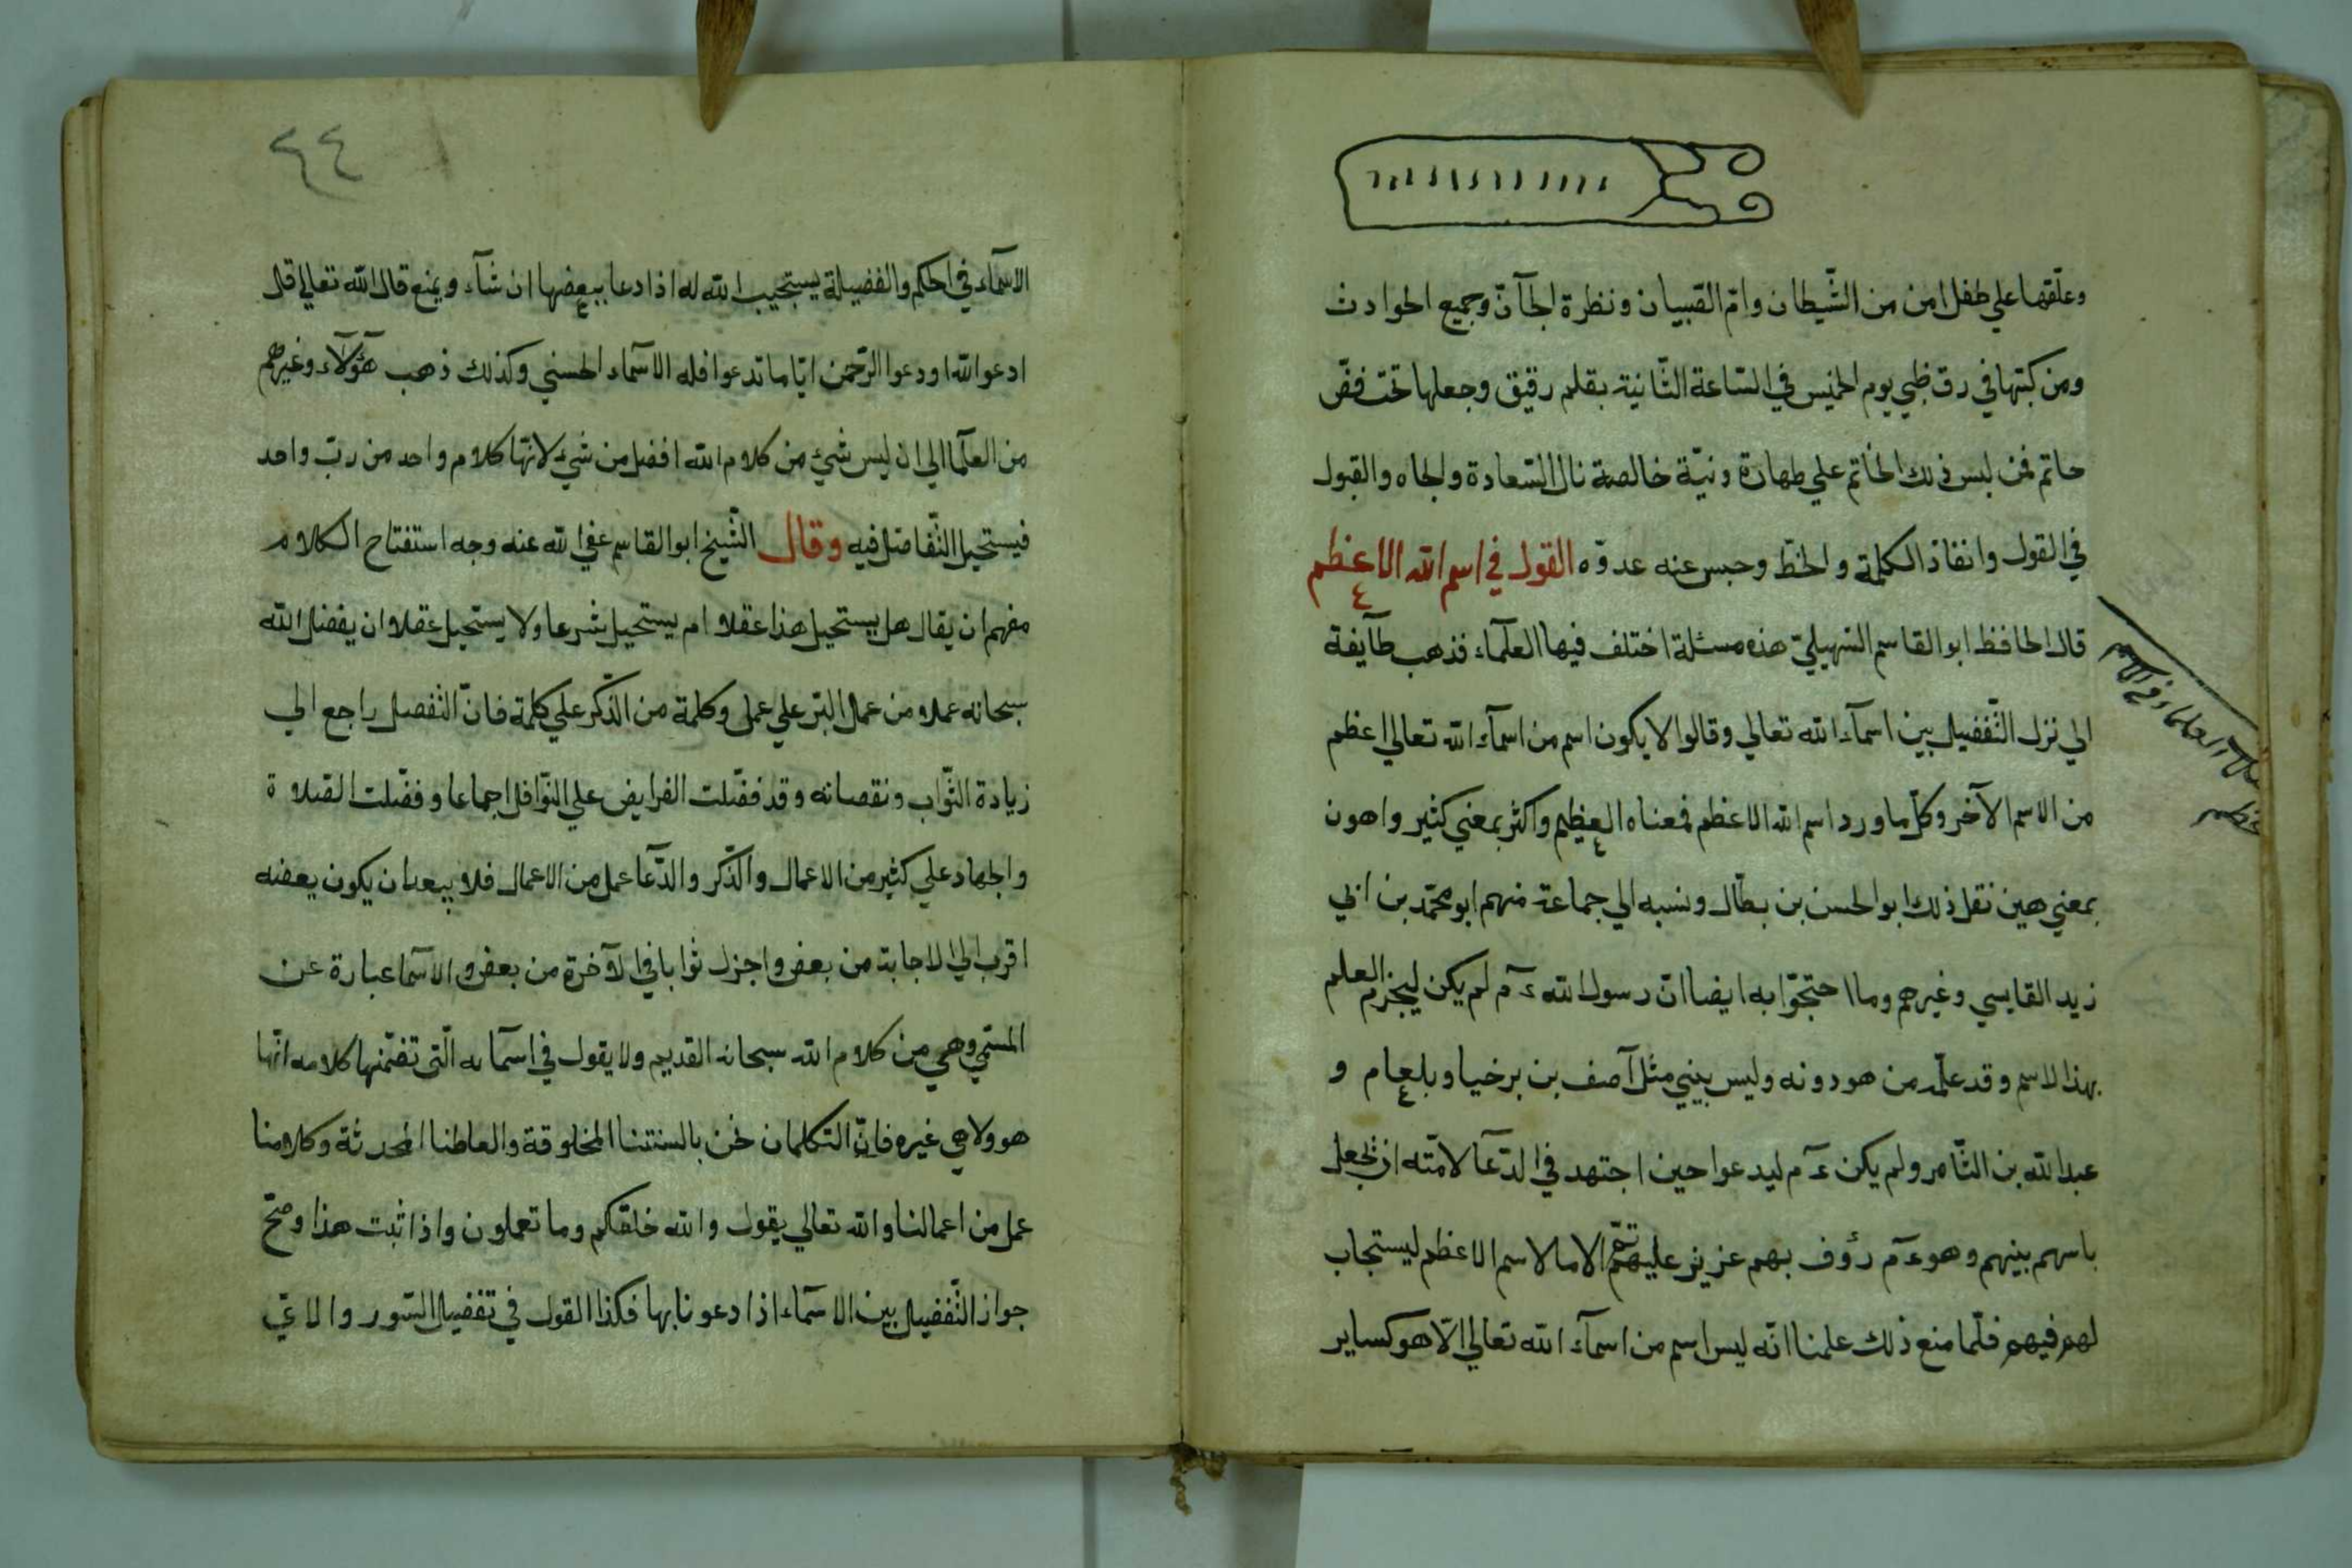 وعلّقها علي طفل امن من الشّيطان وامّ القبيان ونظرة الجآنّ وجميع الحوادث
ومن كبتها في رق ظبي يوم الخميس في السّاعة الثّانية بقلم رقيق وجعلها تحت فقّ
خاتم فمن لبس ذلك الخاتم علي طهارة ونيّة خالصة نال السّعادة والجاه والقبول
في القول وانفاذ الكلمة والخطّ وحبس عنه عدوّه القول في اسم الله الاعظم
قال الحافظ ابو القاسم السّهيليّ هذه مسئلة اختلف فيها العلمآء فذهب طآيفة
الي نزل التّفضيل بين اسمآء الله تعالي وقالوا لا يكون اسم من اسمآء الله تعالي اعظم
من الاسم الآخر وكلّ ما ورد اسم الله الاعظم فمعناه العظيم واكثر بمعني كثير واهون
بمعني هين نقل ذلك ابو الحسن بن بطّال ونسبه الي جماعة منهم ابو محمّد بن ابي
زيد القابسي وغيرهم وما احتجّوا به ايضا انّ رسول الله ءم لم يكن ليجزم العلم
بهذا الاسم وقد علّمه من هو دونه وليس بيني مثل آصف بن برخيا وبلعام و
عبد الله بن الثّامر ولم يكن ءم ليدعوا حين اجتهد في الدّعآ لامّته ان لا يجعل
باسهم بينهم وهو ءم رؤف بهم عزيز عليه الا ما لاسم الاعظم ليستجاب
لهم فيهم فلمّا منع ذلك علمنا انّه ليس اسم من اسمآء الله تعالي الّا هو كساير
العلماء في الاسم
٤٤
الاسمآء في الحكم والفضيلة يستجيب الله له اذا دعا ببعضها ان شآء ويمنع قال الله تعالي قال
ادعوا الله او دعوا الرّحمن ايّا ما تدعوا فله الاسمآء الحسني وكذلك ذهب هؤلآء وغيرهم
من العلمآ الي ان ليس شيء من كلام الله افضل من شيء لانّها كلام واحد من ربّ واحد
فيستحيل التّفاضل فيه وقال الشّيخ ابو القاسم عفي الله عنه وجه استفتاح الكلام
مفهم ان يقال هل يستحيل هذا عقلا ام يستحيل شرعا ولا يستحيل عقلا ان يفضل الله
سبحانه عملا من عمال البرّ علي عمل وكلمة من الذّكر علي كلمة فانّ التّفصل راجع الي
زيادة الثّواب ونقصانه وقد فضّلت الفرايض علي النّوافل اجماعا وفضّلت الصّلاة
والجهاد علي كثير من الاعمال والذّكر والدّعآ عمل من الاعمال فلا يبعد ان يكون بعضه
اقرب الي الاجابة من بعض واجزل ثوابا في الآخرة من بعض والاسمآ عبارة عن
المسمّي وهي من كلام الله سبحانه القديم ولا يقول في اسمآئه الّتي تضمّنها كلامه انّها
هو ولا هي غيره فانّ التكلمان نحن بالسنتنا المخلوقة والعاطنا المحدثة وكلامنا
عمل من اعمالنا والله تعالي يقول والله خلقكم وما تعملون واذا ثبت هذا وصحّ
جواز التّفضيل بين الاسمآء اذا دعونا بها فكذا القول في تفضيل السّور والايّ